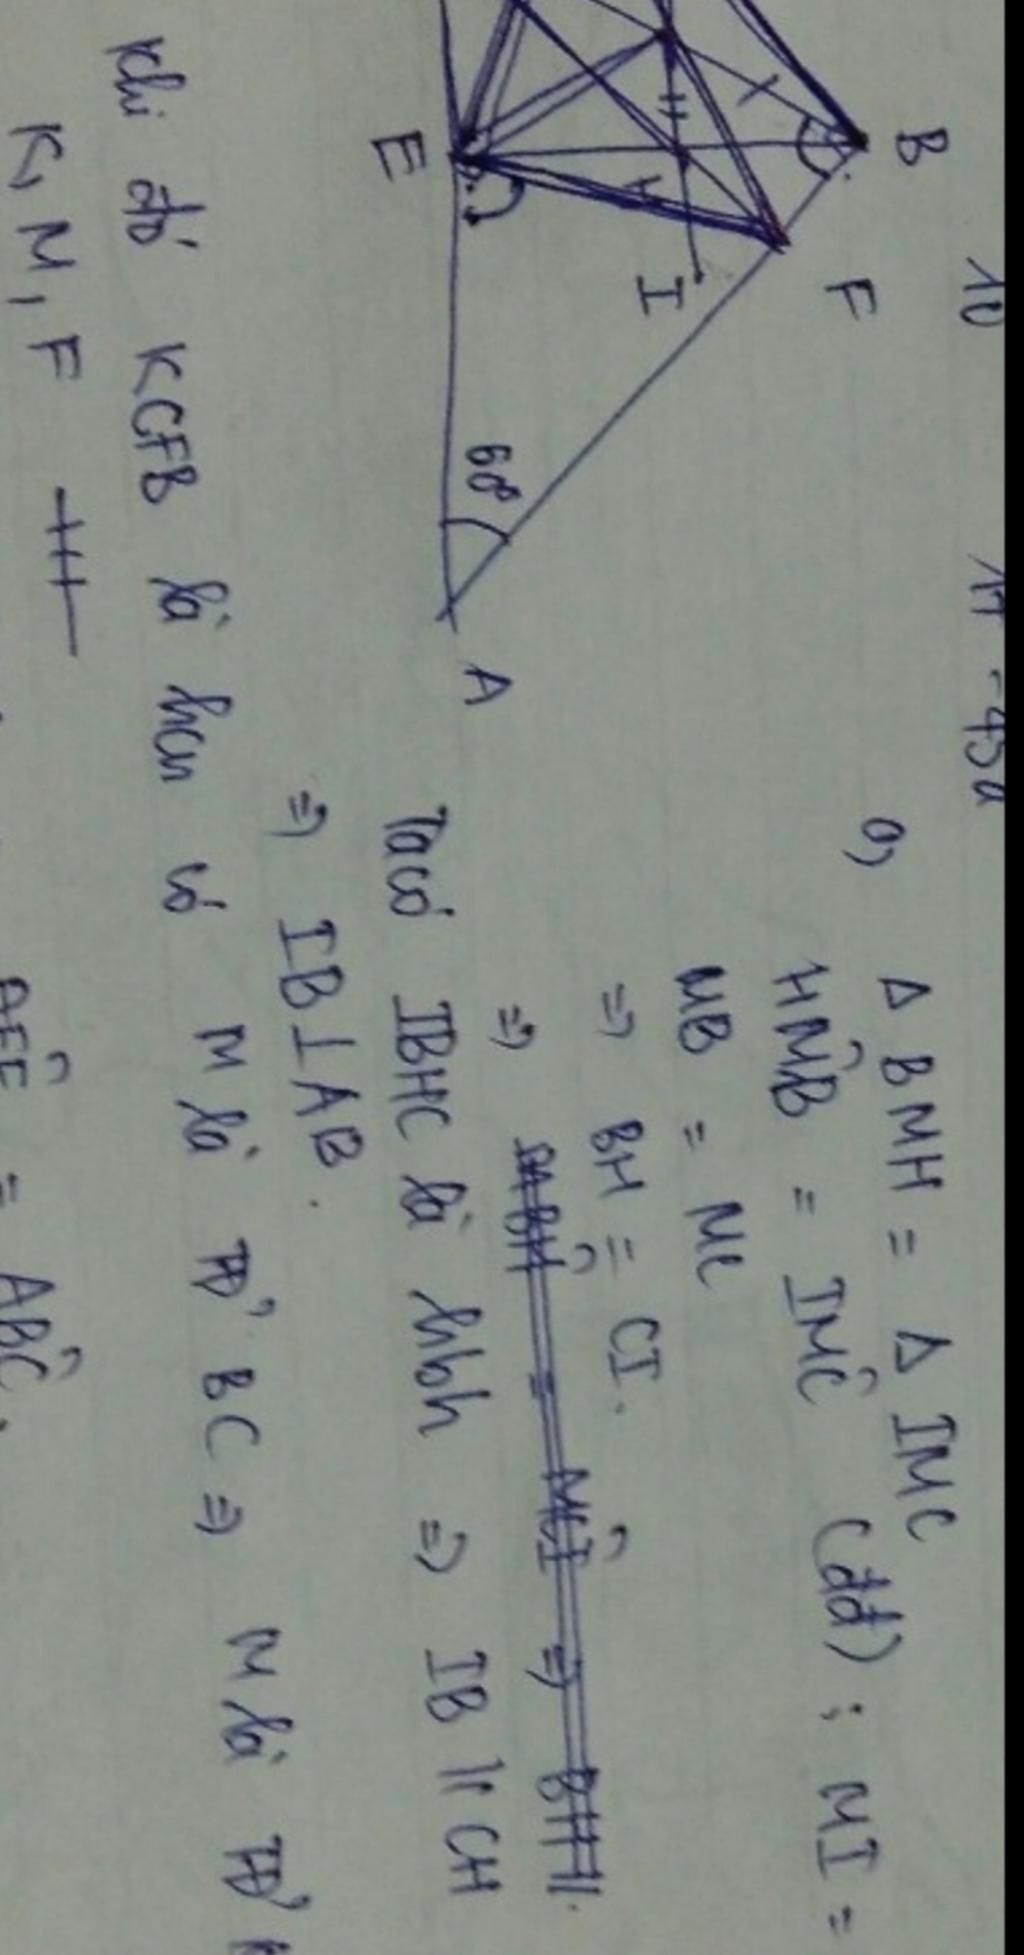 10
14 - 450
B
F
I
E
60°
A
a,
Δ BMH = Δ IMC
HM̂B = IM̂C (đđ) ; MI =
MB = MC
⇒ BH = CI.
⇒
Ta có IBHC là hbh ⇒ IB // CH
⇒ IB ⊥ AB.
Khi đó KCFB là hcn có M là TĐ' BC ⇒ M là TĐ'
K, M, F
= AB̂C.